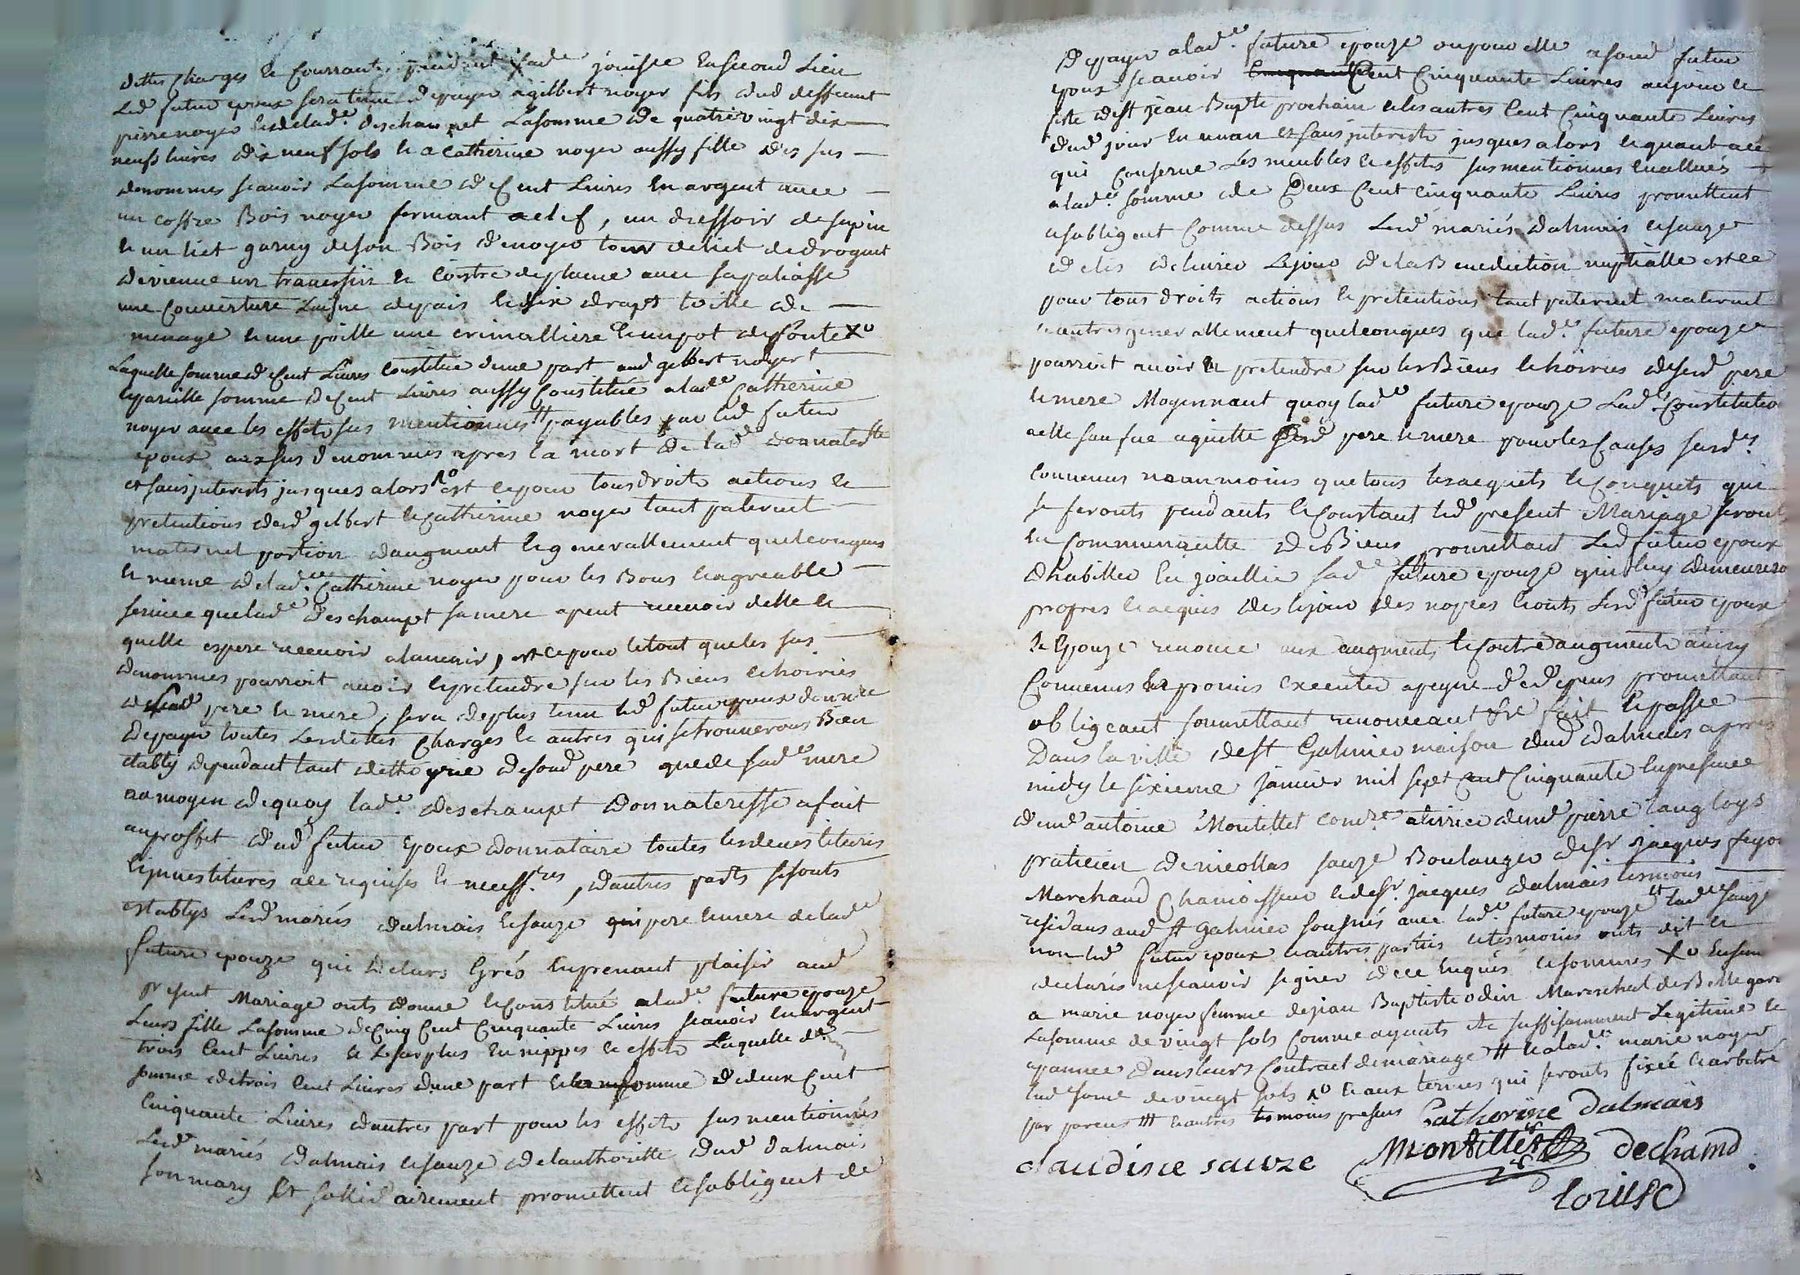 dittes charges le courrant pendant lad.e jouisse En second Lieu
Led. futur epoux sera tenu de payer a gilbert noyer fils dud. deffunt
pierre noyer & de lad.e deschampt La somme de quatre vingt dix
neuf livres dix neuf sols & a Catherine noyer aussy fille des sus
denommes scavoir La somme de Cent Livres En argent avec
un coffre Bois noyer fermant a clef, un dressoir de sapin
& un liet garny de son Bois de noyer tour de liet de droguet
de vienne un traversin & Coitre de plume avec sa paliasse
une Couverture Laine de pais & six draps toille de
menage & une poille une crimalliere & un pot de fonte Xo
Laquelle somme de Cent Livres Constituée d'une part aud. gilbert noyer
& pareille somme de Cent Livres aussy Constituée a lad.e Catherine
noyer avec les effets sus mentionnes payables par led. futur
epoux aux sus denommes apres la mort de lad.e donnateresse
et sans interests jusques alors Xo est ce pour tous droits actions &
pretentions desd. gilbert & Catherine noyer tant paternel
maternel portion d'augment & generallement quelconques
& meme de lad.e Catherine noyer pour les Bons & agreable
service que lad.e deschampt sa mere a peut recevoir d'elle &
quelle espere recevoir a lavenir, est ce pour le tout que les sus
denommes pourroit avoir & pretendre sur les Biens & hoiries
de lad. pere & mere, sera de plus tenu led. futur epoux donnre
de payer toutes les dettes Charges & autres qui se trouverons Bien
etablis dependant tant de l'hoyrie de son d. pere que de sad.e mere
au moyen de quoy lad.e deschampt donnateresse a fait
au proffit dud. futur Epoux donnataire toutes les devestitures
& investitures a ce requises & necess.res, d'autres parts se sonts
establys Lesd. mariés dalmais & sauze pere & mere de lad.e
future epouze qui de leurs Grés En prenant plaisir aud.
present Mariage onts donné & Constitué a lad.e future epouze
Leurs fille La somme de Cinq Cent Cinquante Livres scavoir En argent
trois Cent Livres & Le surplus En nippes & effets Laquelle de
somme de trois Cent Livres d'une part & la somme de deux Cent
Cinquante Livres d'autres part pour les effets sus mentionnés
Lesd. mariés dalmais & sauze de l'authoritte dud. dalmais
son mary Et sollidairement promettent & sobligent de
de payer a lad.e future epouze ou pour elle a son d. futur
epoux scavoir Cent Cinquante Livres au jour &
feste de St jean Bapte prochain & les autres Cent Cinquante Livres
dud. jour En un an Et sans interests jusques alors & quant a ce
qui Conserne Les meubles & effets sus mentionnes Evallués
a lad.e somme de Deux Cent Cinquante Livres promettent
& sobligent Comme dessus Lesd. mariés dalmais & sauze
de les delivrer Le jour de la Benediction nuptialle est ce
pour tous droits actions & pretentions tant paternel maternel
& autres generallement quelconques que lad.e future epouze
pourroit avoir & pretendre sur les Biens & hoiries desesd. pere
& mere Moyennant quoy lad.e future epouze Lad.e Constitution
a elle sus fue a quitte sesd. pere & mere pour les Causes susd.es
Convenus neanmoins que tous les acquets & Conquets qui
se feronts pendants & Constant led. present Mariage seront
En Communautte de Biens promettant Led. futur epoux
d'habiller & joaillier sad.e future epouze qui luy demeurera
propres & acquis des le jour des noyces & onts Lesd. futur epoux
& Epouze renoncé aux augments & Contre augments ainsy
Convenus & promis executer a peyne de d. depens promettant
obligeant soumettant renonceant &c fait & passé
Dans la ville de St Galmier maison dud. dalmais apres
midy le sixieme janvier mil sept cent Cinquante En presence
de m.e antoine Montillet Com.re a terrier de m.e pierre langloys
praticien de nicollas sauze Boulanger de sr. jacques feyor
Marchand Chamoisseur & de sr. jacques dalmais tesmoins
residans aud. St Galmier sousnés avec lad.e future epouze Et lad.e sauze
non led. futur epoux & autres parties & tesmoins onts dit &
declarés ne scavoir signer de ce Enquis & sommes Xo En sem
a marie noyer femme de jean Baptiste odin Mareschal de Bellegarde
La somme de vingt sols Comme ayants été suffisamment Legitimée &
apannée dans leurs Contract de mariage # & a lad.e marie noyer
lad. some de vingt sols Xo & aux termes qui seronts fixée & arbitré
par parens ### & autres tesmoins presens Catherine dalmais
claudisce sauze Montillet dechamd
loruse